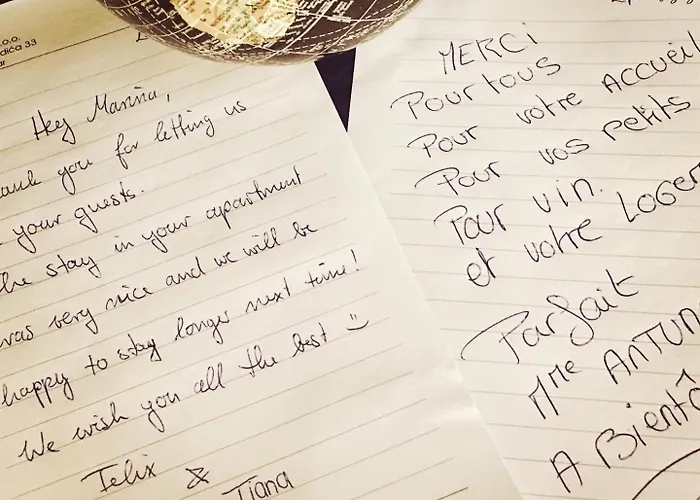 o.o.
33
Hey Marina,
thank you for letting us
your guests.
The stay in your apartment
was very nice and we will be
happy to stay longer next time!
We wish you all the best
Felix
&
Tiana
MERCi
Pour tous
Pour votre ACCUEIL
Pour vos petits
Pour vin.
et votre LOGE
Parfait
Mme ANTUN
A BiENT